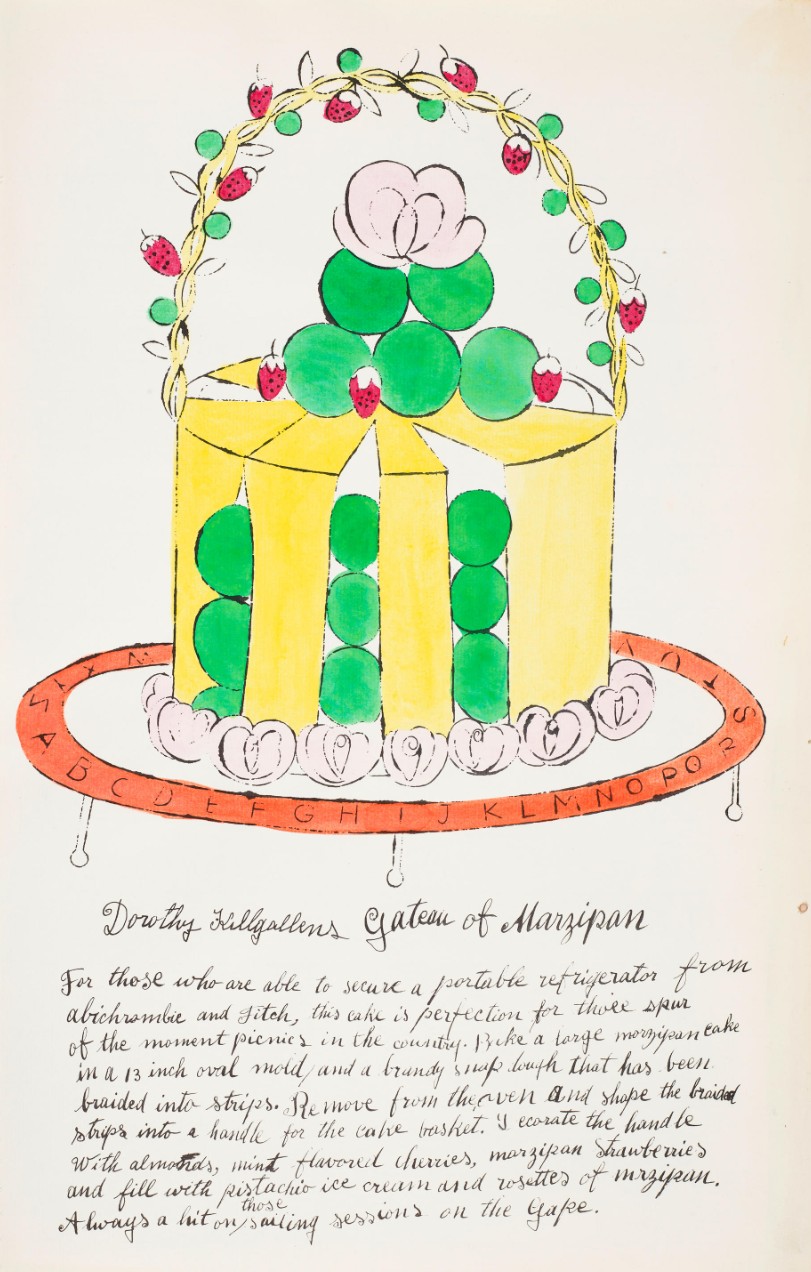 S T X W V U T S
A B C D E F G H I J K L M N O P O R
Dorothy Killgallens Gateau of Marzipan
For those who are able to secure a portable refrigerator from
abichrombie and Fitch, this cake is perfection for those spur
of the moment picnics in the country. Bake a large marzipan cake
in a 13 inch oval mold, and a brandy snap dough that has been
braided into strips. Remove from the oven and shape the braided
strips into a handle for the cake basket. Decorate the handle
with almonds, mint flavored cherries, marzipan strawberries
and fill with pistachio ice cream and rosettes of mrzipan.
Always a hit on those sailing sessions on the Cape.